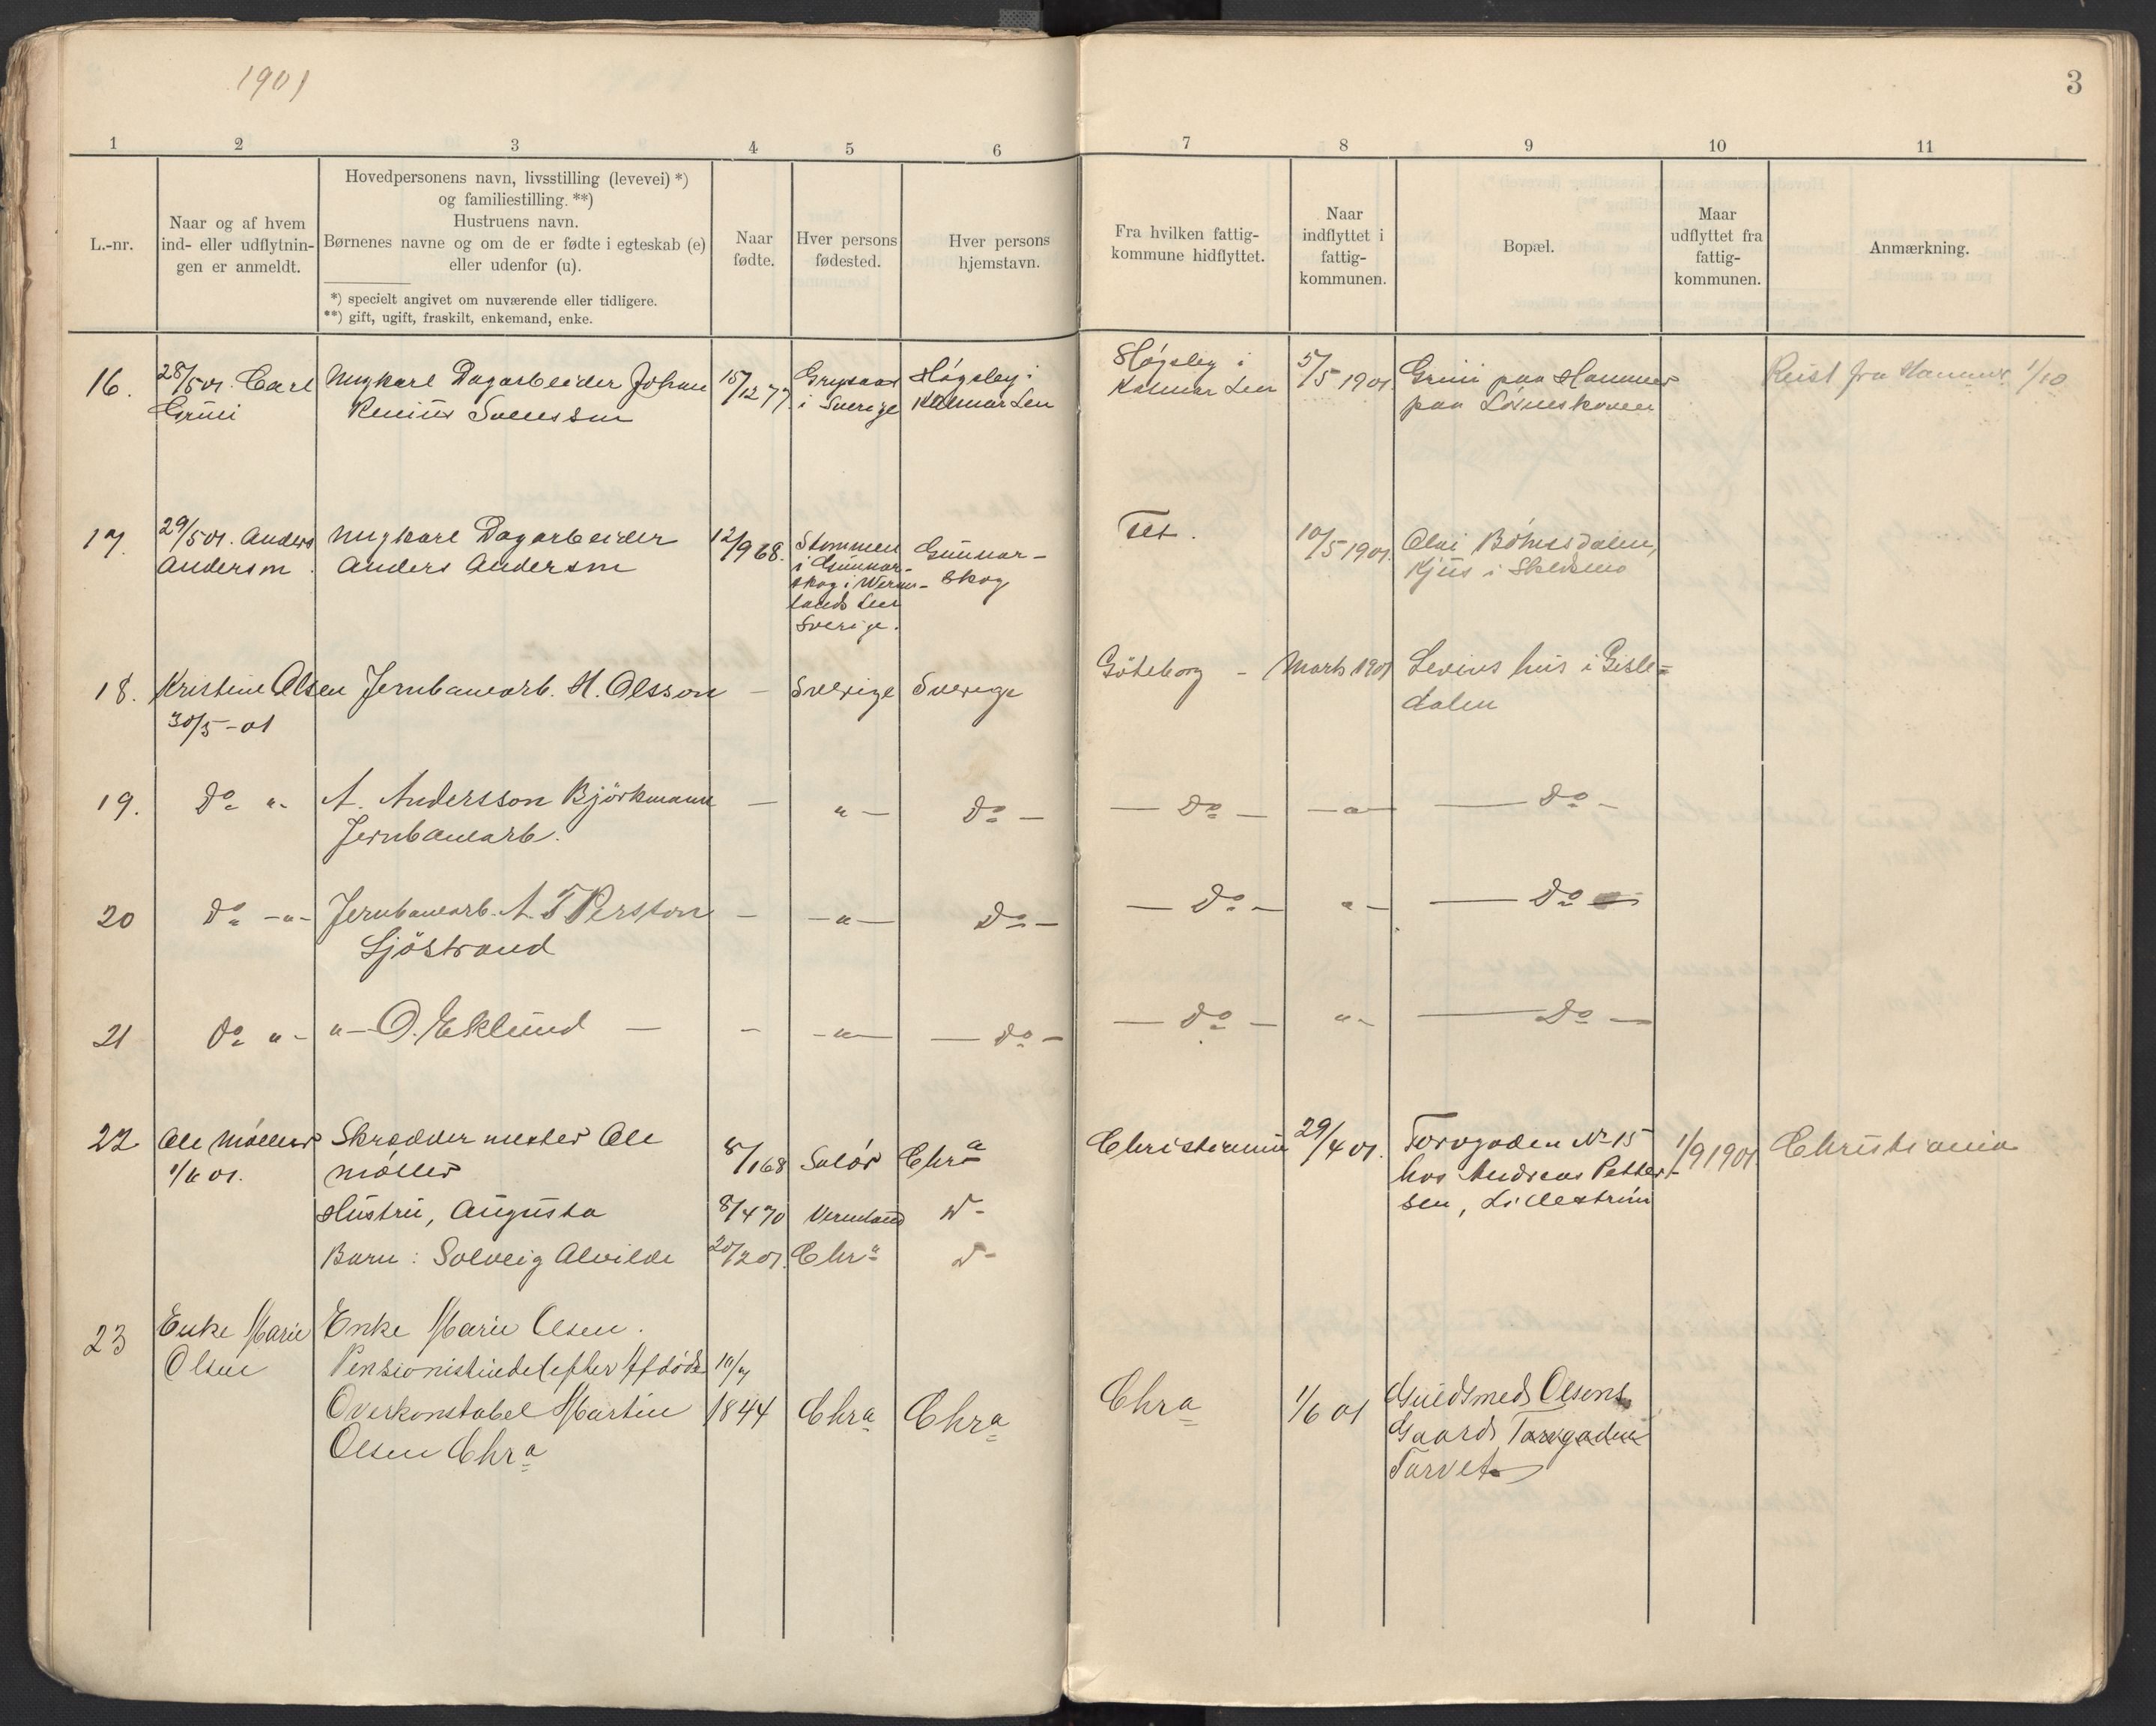 1901
3
1 2 3 4 5 6 7 8 9 10 11
L.-nr.
Naar og af hvem
ind- eller udflytnin-
gen er anmeldt.
Hovedpersonens navn, livsstilling (levevei) *)
og familiestilling. **)
Hustruens navn.
Børnenes navne og om de er fødte i egteskab (e)
eller udenfor (u).
*) specielt angivet om nuværende eller tidligere.
**) gift, ugift, fraskilt, enkemand, enke.
Naar
fødte.
Hver persons
fødested.
Hver persons
hjemstavn.
Fra hvilken fattig-
kommune hidflyttet.
Naar
indflyttet i
fattig-
kommunen.
Bopæl.
Maar
udflyttet fra
fattig-
kommunen.
Anmærkning.
16.
28/5 01. Carl
Grüni
Ungkarl Dagarbeider Johan
Svensson
15/12 77.
i Sverige
Høgsby i
Kalmar Len
Høgsby i
Kalmar Len
5/5 1901
Grüni paa Hammer
paa
Reist fra Hammer 1/10
17.
29/5 01. Anders
Andersen.
Ungkarl Dagarbeider
Anders Andersen
12/9 68.
Stommen
i Gunnar-
skog i Werm-
lands Len
Sverige.
Gunnar-
skog
Fet.
10/5 1901.
Olai Bøhlesdalen,
Kjus i Skedsmo
18.
Kristine Olsen
30/5 -01
Jernbanearb. H. Olsson
-
Sverige
Sverige
Göteborg -
Marts 1901
Levins hus i Gisle=
dalen
19.
Do "-
A. Andersson Björkmann
Jernbanearb.
-
"-
Do -
- Do -
-"-
- Do -
20
Do -"-
Jernbanearb. A. T. Persson
Sjöstrand
-
-"-
Do -
- Do -
"-
- Do -
21
Do "-
"- O. Eklund -
-
-"-
- Do -
- Do -
"-
- Do -
22
Ole Møller
1/6 01.
Skrædder mester Ole
Møller
8/1 68
Solør
Chra
Christiania
29/4 01.
Torvgaden No 15
hos Andreas Petter-
sen, Lillestrøm
1/9 1901
Christiania
Hustru, Augusta
8/4 70
Vermland
Do
Barn: Solveig Alvilde
20/2 01.
Chra
Do
23
Enke Marie
Olsen
Enke Marie Olsen.
Pensionistinde (efter Afdøde
Overkonstabel Martin
Olsen Chra
10/7
1844
Chra
Chra
Chra
1/6 01
Guldsmed Olsens
Gaard, Torvgaden
Torvet